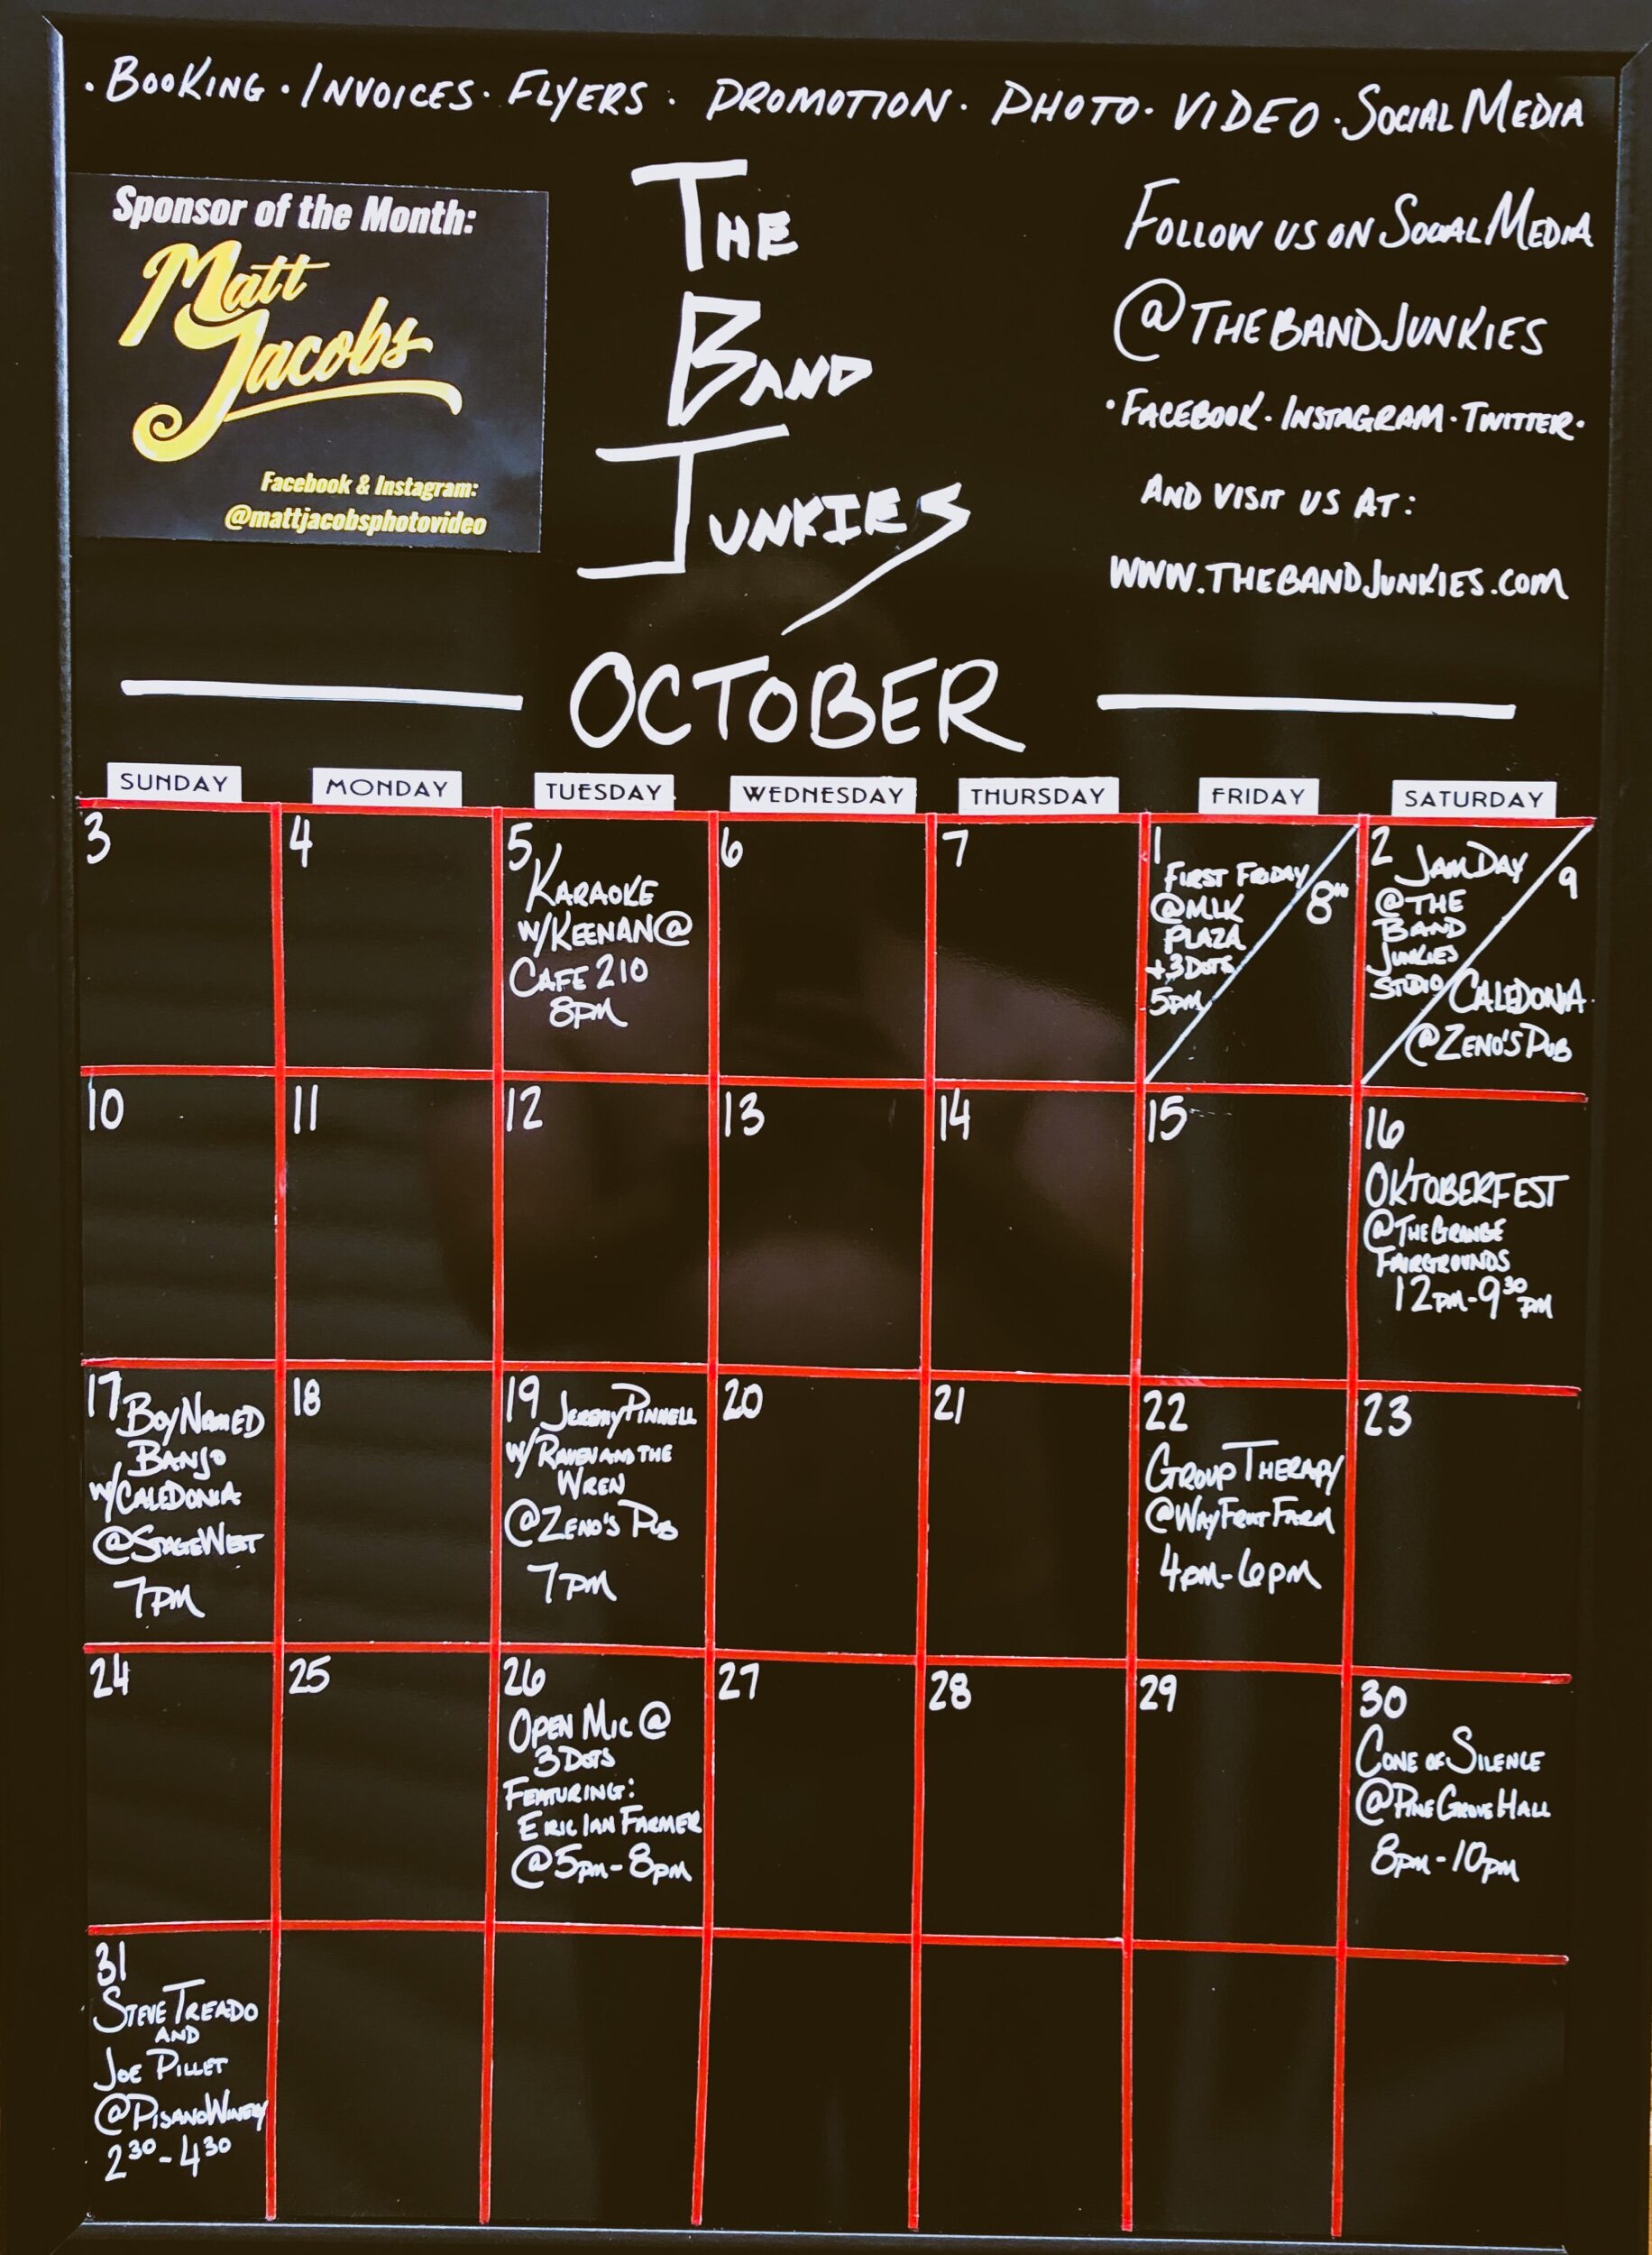 · BOOKING · INVOICES · FLYERS · PROMOTION · PHOTO · VIDEO · SOCIAL MEDIA
Sponsor of the Month:
Matt
Jacobs
Facebook & Instagram:
@mattjacobsphotovideo
THE
BAND
JUNKIES
FOLLOW US ON SOCIAL MEDIA
@THEBANDJUNKIES
· FACEBOOK · INSTAGRAM · TWITTER ·
AND VISIT US AT:
WWW.THEBANDJUNKIES.COM
OCTOBER
SUNDAY MONDAY TUESDAY WEDNESDAY THURSDAY FRIDAY SATURDAY
3
4
5
KARAOKE
W/KEENAN@
CAFE 210
8PM
6
7
1
FIRST FRIDAY
@MLK
PLAZA
+3DOTS
5PM
8TH
2
JAM DAY
@THE
BAND
JUNKIES
STUDIO
9
CALEDONIA
@ZENO'S PUB
10
11
12
13
14
15
16
OKTOBERFEST
@THE GRANGE
FAIRGROUNDS
12PM-930PM
17
BOY NAMED
BANJO
W/CALEDONIA
@STAGE WEST
7PM
18
19
JEREMY PINNELL
W/RAVEN AND THE
WREN
@ZENO'S PUB
7PM
20
21
22
GROUP THERAPY
@WAYFRUIT FARM
4PM-6PM
23
24
25
26
OPEN MIC @
3DOTS
FEATURING:
ERIC IAN FARMER
@5PM-8PM
27
28
29
30
CONE OF SILENCE
@PINE GROVE HALL
8PM-10PM
31
STEVE TREADO
AND
JOE PILLET
@PISANO WINERY
230-430